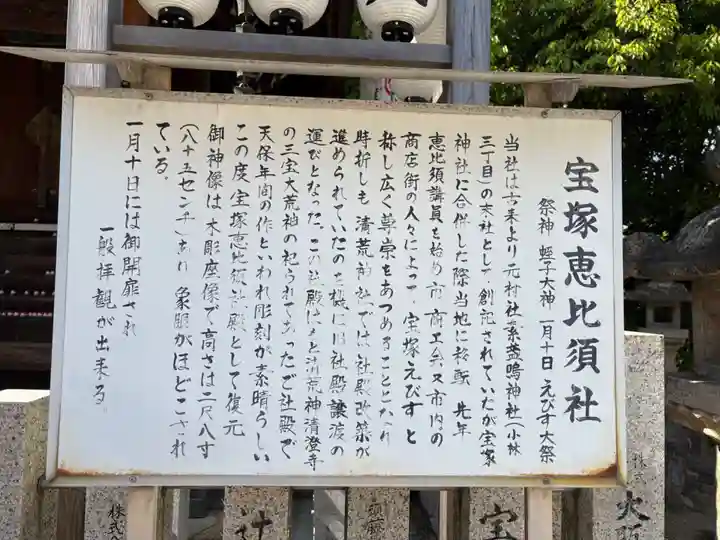 宝塚恵比須社
祭神 蛭子大神 一月十日 えびす大祭
当社は古来より元村社素盞嗚神社(小林
三丁目)の末社として創記されていたが宝塚
神社に合併した際当地に移転 先年
恵比須講員を始め市商工会又市内の
商店街の人々によって、宝塚えびすと
称し広く尊崇をあつめることとなり
時折しも清荒神社では社殿改築が
進められていたのを機に旧社殿譲渡の
運びとなった。この社殿はもと清荒神清澄寺
の三宝大荒神の祀られてあったご社殿で
天保年間の作といわれ彫刻が素晴らしい
この度宝塚恵比須社殿として復元
御神像は木彫座像で高さは二尺八寸
(八十五センチ)あり 象眼がほどこされ
ている。
一月十日には御開扉され
一般拝観が出来る。
株式
社
宝
株式
大阪